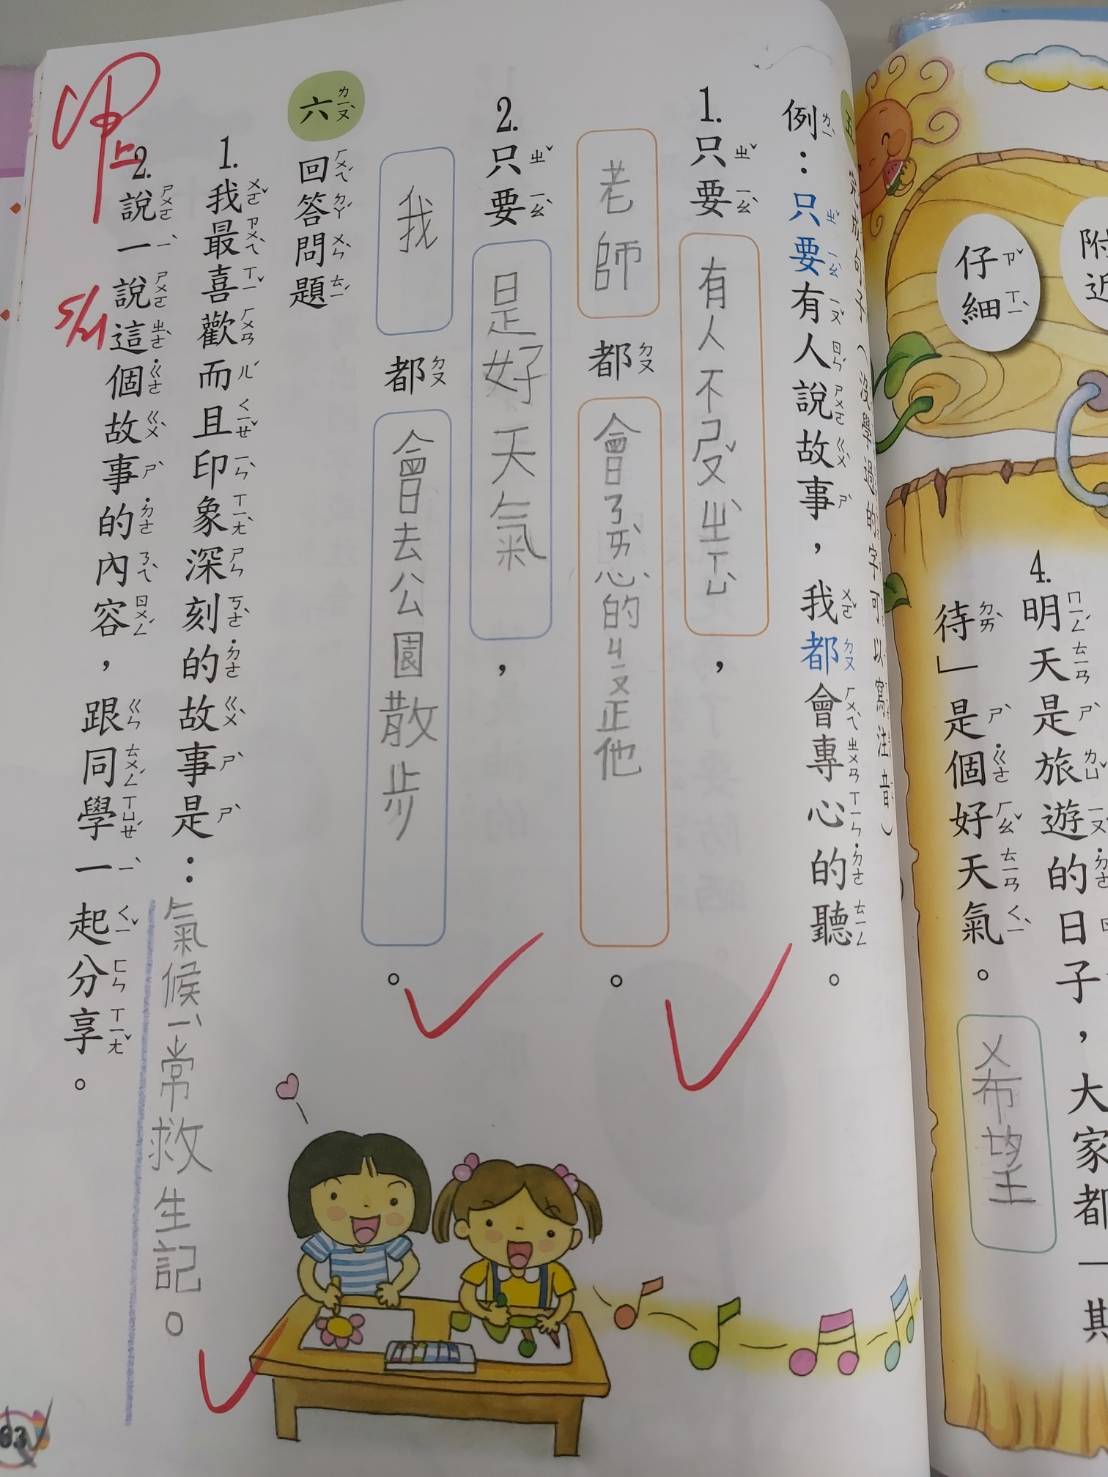 附近
仔細
4. 明天是旅遊的日子，大家都一期
待」是個好天氣。
希望
五 完成句子（沒學過的字可以寫注音）
例：只要有人說故事，我都會專心的聽。
1. 只要 有人不ㄕㄡˇㄓㄒㄩˋ，
老師 都 會ㄋㄞˋ心的ㄐㄧㄡ正他 。
2. 只要 是好天氣 ，
我 都 會去公園散步 。
六 回答問題
1. 我最喜歡而且印象深刻的故事是：氣候ㄧˋ常救生記。
2. 說一說這個故事的內容，跟同學一起分享。
甲上
5/21
63